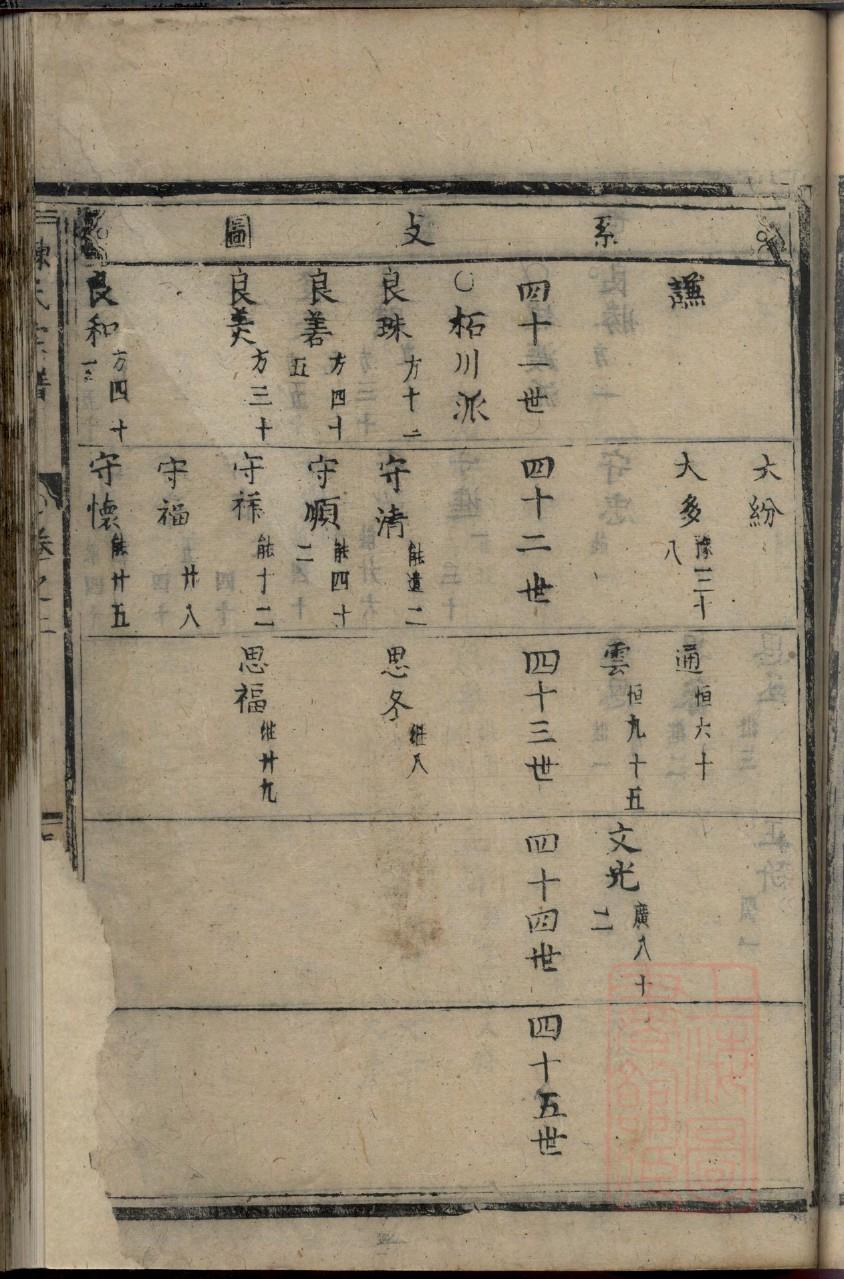 系支圖
大紛
謙
大多 豫三十八
通 恒六十
雲 恒九十五
文光 廣八十二
四十一世
四十二世
四十三世
四十四世
四十五世
○柘川派
良珠 方十二
守清 能遺二
思冬 継八
良善 方四十五
守順 能四十二
良美 方三十
守祥 能十二
思福 继廿九
守福 廿八
良和 方四十一
守懷 能廿五
陳氏宗譜
卷之二